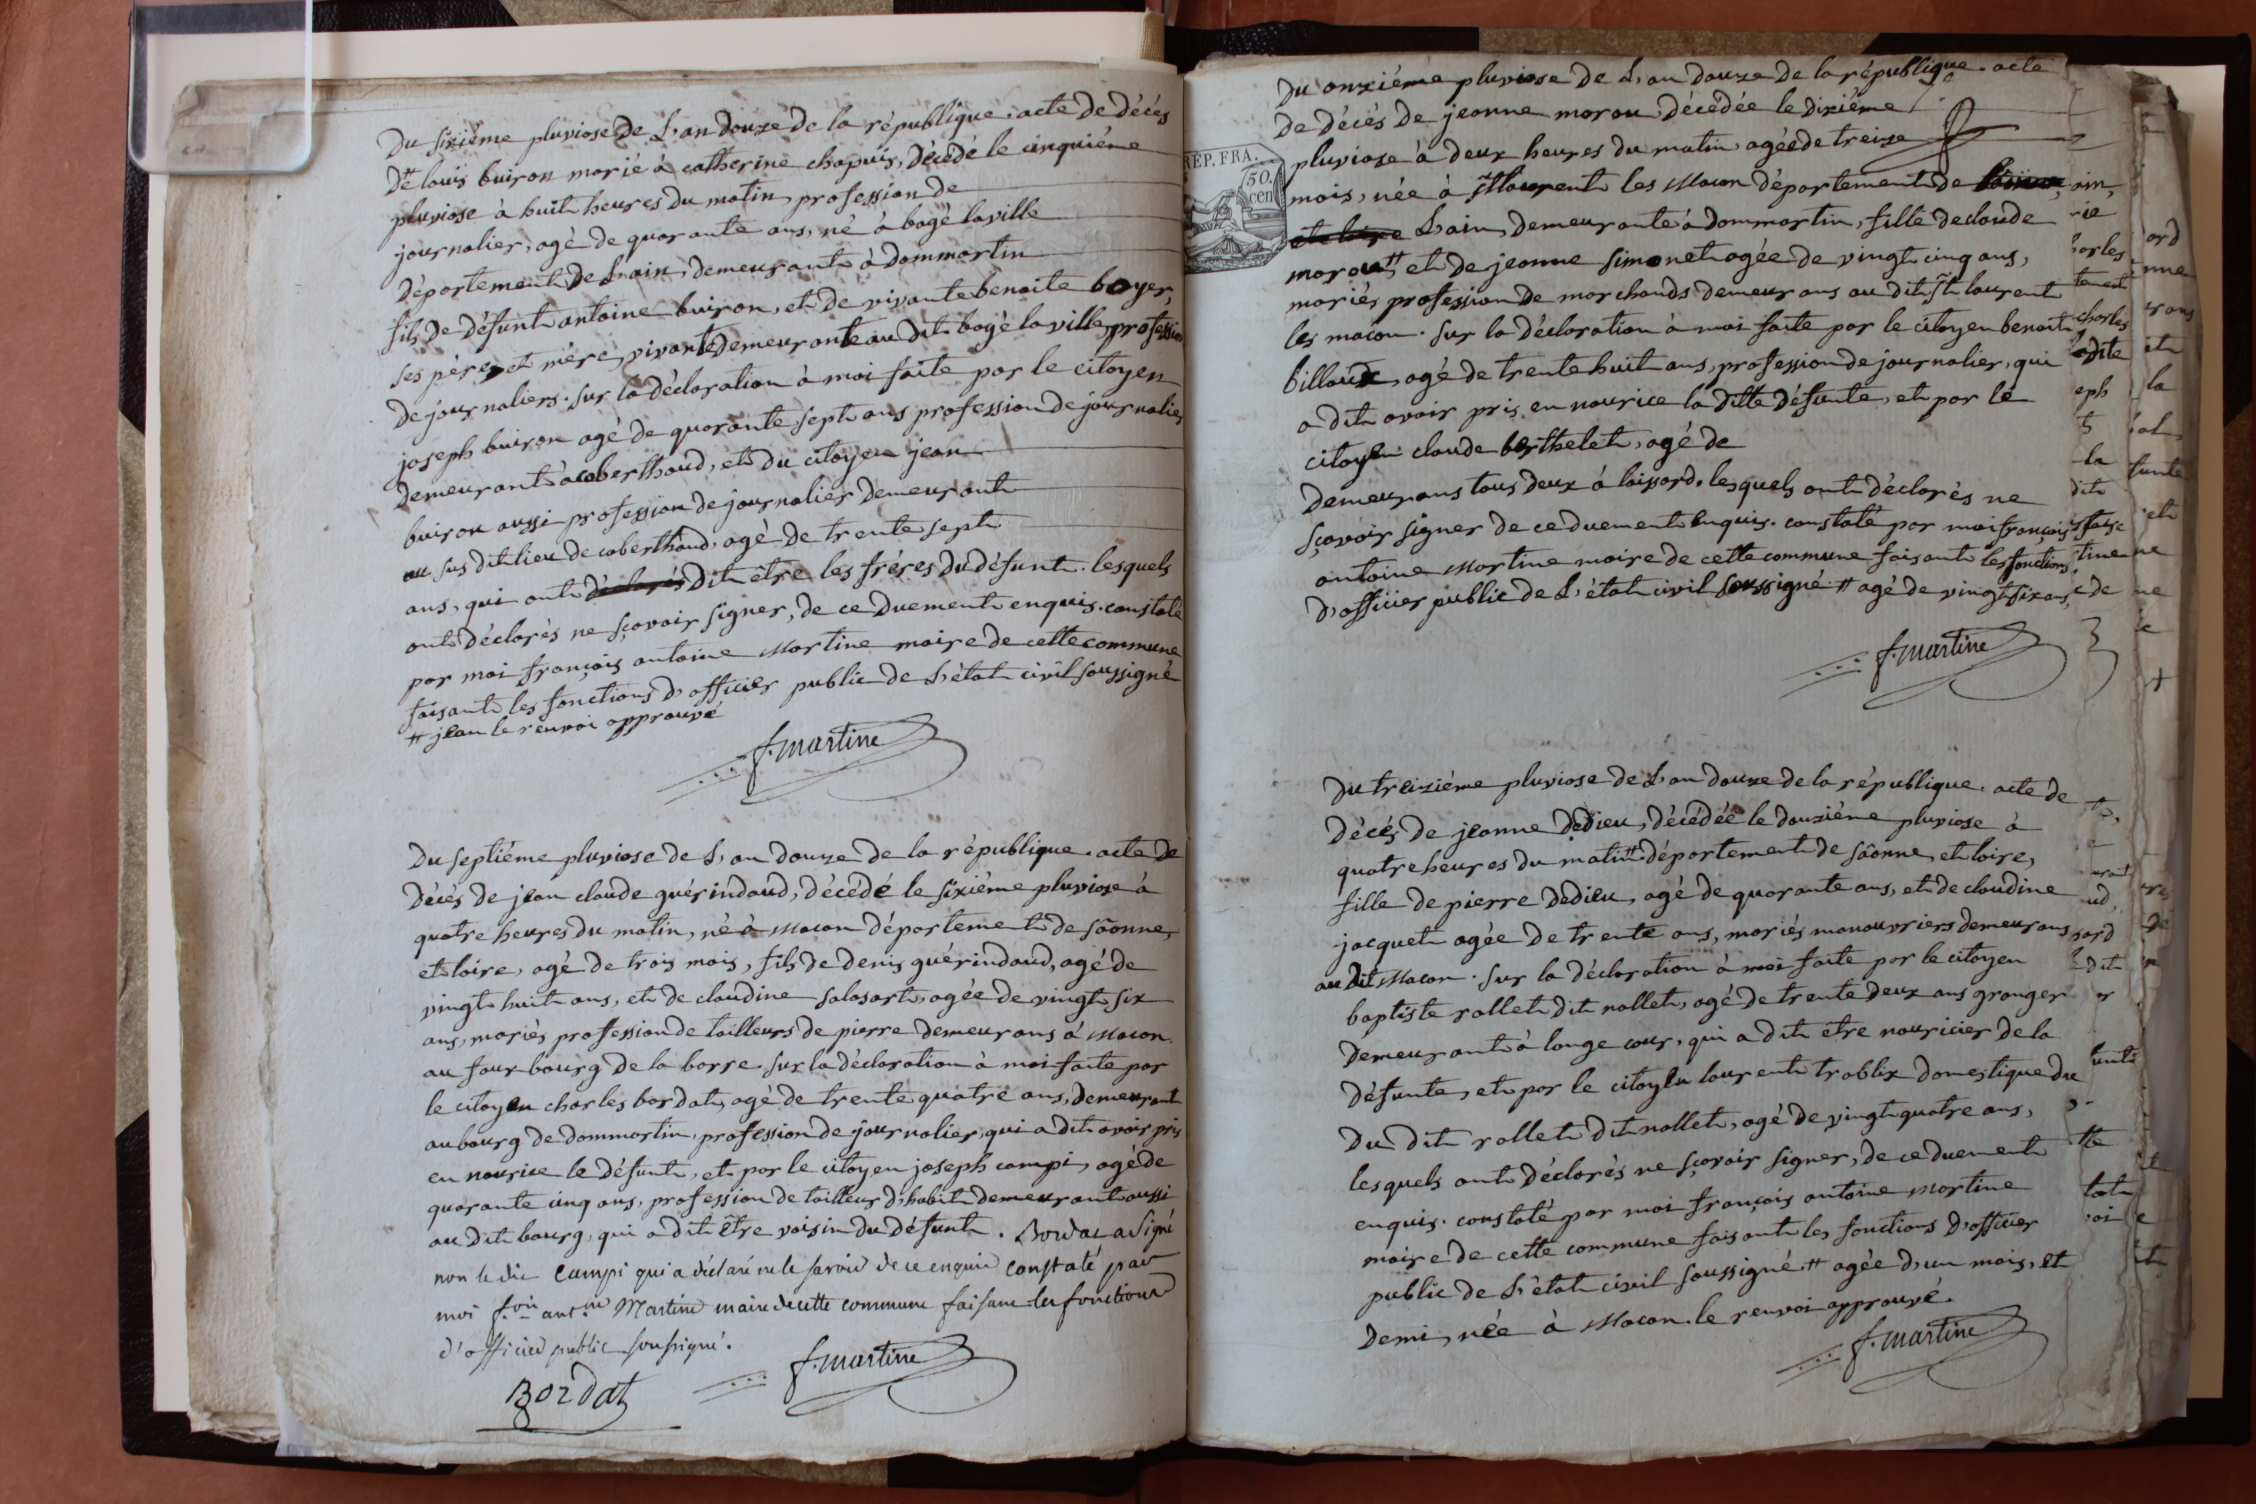 Du sixiéme pluviose De L'an douze de la république. acte De Décès
De louis buiron marié à catherine chapuis, Décédé le cinquiéme
pluviose à huit heures du matin, profession de
journalier, agé de quarante ans, né à bagé laville
Département De L'ain, demeurant à dommartin
fils De défunt antoine buiron, et de vivante benoite boyer,
ses pére et mére, vivante Demeurante au dit bagé la ville, profession
De journaliers. sur la déclaration à moi faite par le citoyen
joseph buiron agé de quarante sept ans profession de journalier
Demeurant à coberthoud, et du citoyen jean
buiron aussi profession de journalier Demeurant
au sus dit lieu de coberthoud, agé de trente sept
ans, qui ont déclarés Dit être les fréres du défunt. lesquels
ont déclarés ne sçavoir signer, de ce Duement enquis. constaté
par moi françois antoine Martine maire de cette commune
faisant les fonctions d'officier public de l'état civil soussigné
# jean le renvoi approuvé
f. martine
Du septiéme pluviose de L'an douze de la république. acte De
Décès de jean claude guérindaud, décédé le sixiéme pluviose à
quatre heures du matin, né à Macon département de sâonne
et loire, agé de trois mois, fils de denis guérindaud, agé de
vingt huit ans, et de claudine salasart, agée de vingt six
ans, mariés profession de tailleurs de pierre demeurans à Macon
au faux bourg de la barre. sur la déclaration à moi faite par
le citoyen charles bordat, agé de trente quatre ans, demeurant
au bourg de dommartin, profession de journalier, qui a dit avoir pris
en nourice le défunt, et par le citoyen joseph campi, agé de
quarante cinq ans, profession de tailleur d'habit demeurant aussi
au Dit bourg, qui a dit être voisin du défunt. Bordat a signé
non le dit Campi qui a déclaré ne le savoir de ce enquis constaté par
moi f.ois ant.ne Martine maire de cette commune faisant les fonctions
d'officier public soussigné.
f. martine
Bordat
Du onziéme pluviose De L'an douze De la république. acte
De Décès De jeanne morou décédée le dixiéme
REP. FRA.
50. cen
pluviose à deux heures du matin, agée de treize
mois, née à St laurent les Macon département de
et loire L'ain, Demeurante à dommartin, fille de claude
morou # et de jeanne simonet agée de vingt cinq ans,
mariés, profession de marchands demeurans au dit St laurent
les macon. sur la déclaration à moi faite par le citoyen benoit
billoux, agé de trente huit ans, profession de journalier, qui
a dit avoir pris en nourice la ditte défunte, et par le
citoyen claude berthelet, agé de
Demeurans tous deux à loissard. lesquels ont déclarés ne
sçavoir signer de ce duement enquis. constaté par moi françois
antoine Martine maire de cette commune faisant les fonctions
d'officier public de L'état civil soussigné # agé de vingt six ans,
f. martine
Du treiziéme pluviose de L'an douze de la république. acte de
Décés De jeanne Dedieu, décédée le douziéme pluviose à
quatre heures du matin # département de sâonne et loire,
fille de pierre Dedieu, agé de quarante ans, et de claudine
jacquet agée de trente ans, mariés manouvriers demeurans
au dit Macon. sur la déclaration à moi faite par le citoyen
baptiste rollet dit nallet, agé de trente deux ans granger
Demeurant à longe cour, qui a dit être nouricier de la
Défunte, et par le citoyen laurent troblix domestique du
Du dit rollet dit nallet, agé de vingt quatre ans,
lesquels ont déclarés ne sçavoir signer, de ce duement
enquis. constaté par moi françois antoine Martine
maire de cette commune faisant les fonctions d'officier
public de L'état civil soussigné # agée d'un mois, et
Demi, née à Macon. le renvoi approuvé.
f. martine